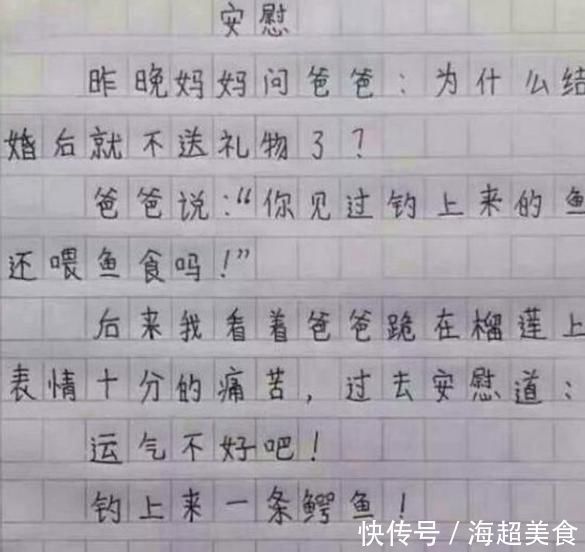 安慰
昨晚妈妈问爸爸：为什么结
婚后就不送礼物了？
爸爸说：“你见过钓上来的鱼
还喂鱼食吗！”
后来我看着爸爸跪在榴莲上
表情十分的痛苦，过去安慰道：
运气不好吧！
钓上来一条鳄鱼！
快传号 / 海超美食